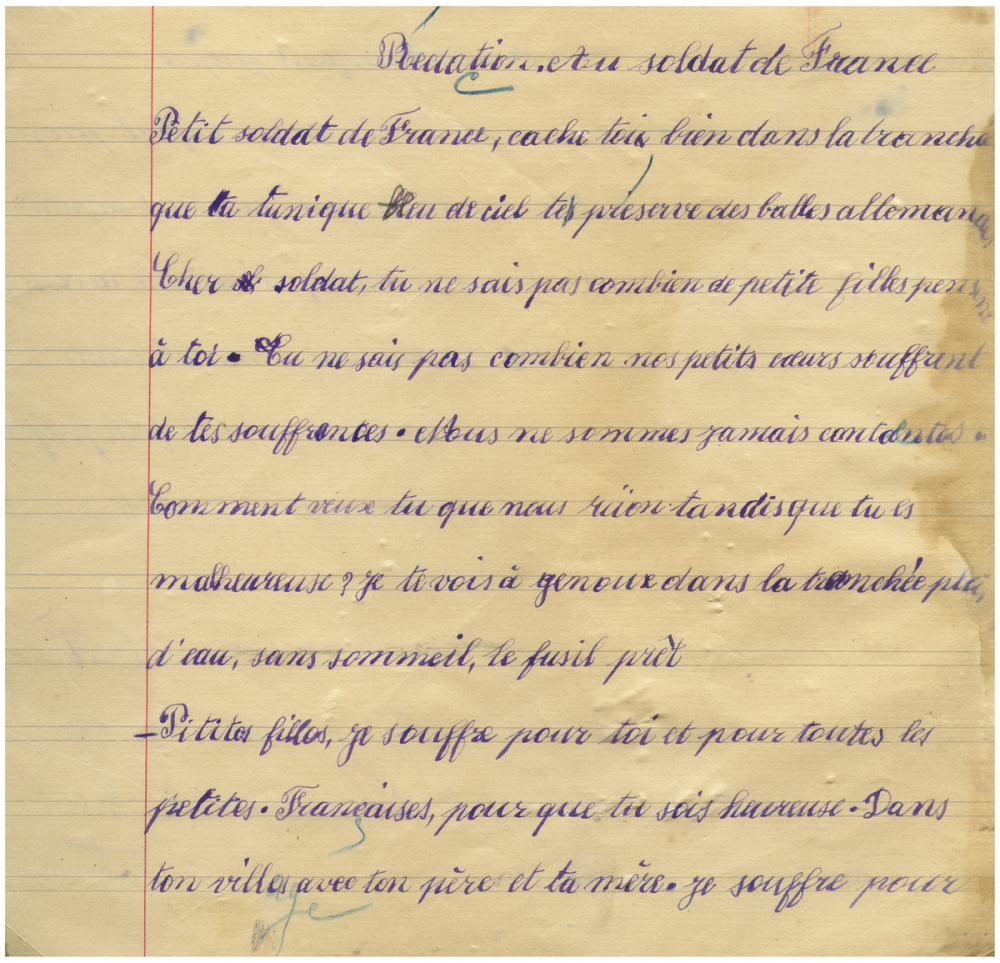 Redation. Au soldat de France
Petit soldat de France, cache toi bien dans la tranche
que ta tunique bleu de ciel te préserve des balles alleman
Cher soldat, tu ne sais pas combien de petite filles pens
à toi. Tu ne sais pas combien nos petits cœurs souffrent
de tes souffrences. Nous ne sommes jamais contentes.
Comment veux tu que nous riion tandisque tu es
malheureuse? Je te vois à genoux dans la tranchée
d'eau, sans sommeil, le fusil prêt
-Pitites filles, je souffre pour toi et pour toutes les
petites. Françaises, pour que tu sois heureuse. Dans
ton village avec ton père et ta mère. je souffre pour